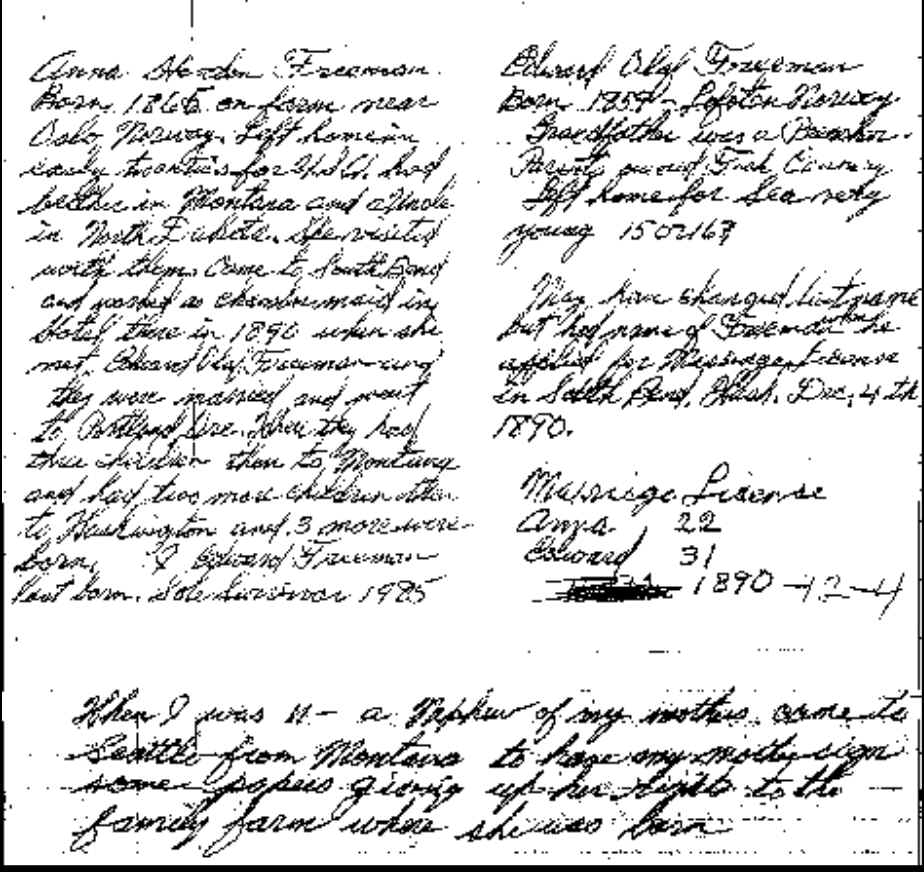 Anna Freeman
Born 1866 on farm near
Oslo, Norway. Left home in
early twenties for U.S.A. had
brother in Montana and a Uncle
in North Dakota. She visited
with them. Came to South Bend
and worked as chambermaid in
Hotel there in 1890 when she
met Edward Olaf Freeman and
they were married and went
to Portland Ore. Where they had
three children then to Montana
and had two more children then
to Washington and 3 more were
born. I Edward Freeman
last born. Sole Survivor 1985
Edward Olaf Freeman
Born 1859 - Lofoten Norway.
Grandfather was a
Parents owned Fish Cannery
Left home for Sea very
young 15 or 16?
May have changed last name
but had name of Freeman when he
applied for Marriage License
in South Bend, Wash. Dec. 4 th
1890.
Marriage License
Anna 22
Edward 31
1890 - 12-4
When I was 11 - a Nephew of my mothers came to
Seattle from Montana to have my mother sign
some papers giving up her rights to the
family farm where she was born